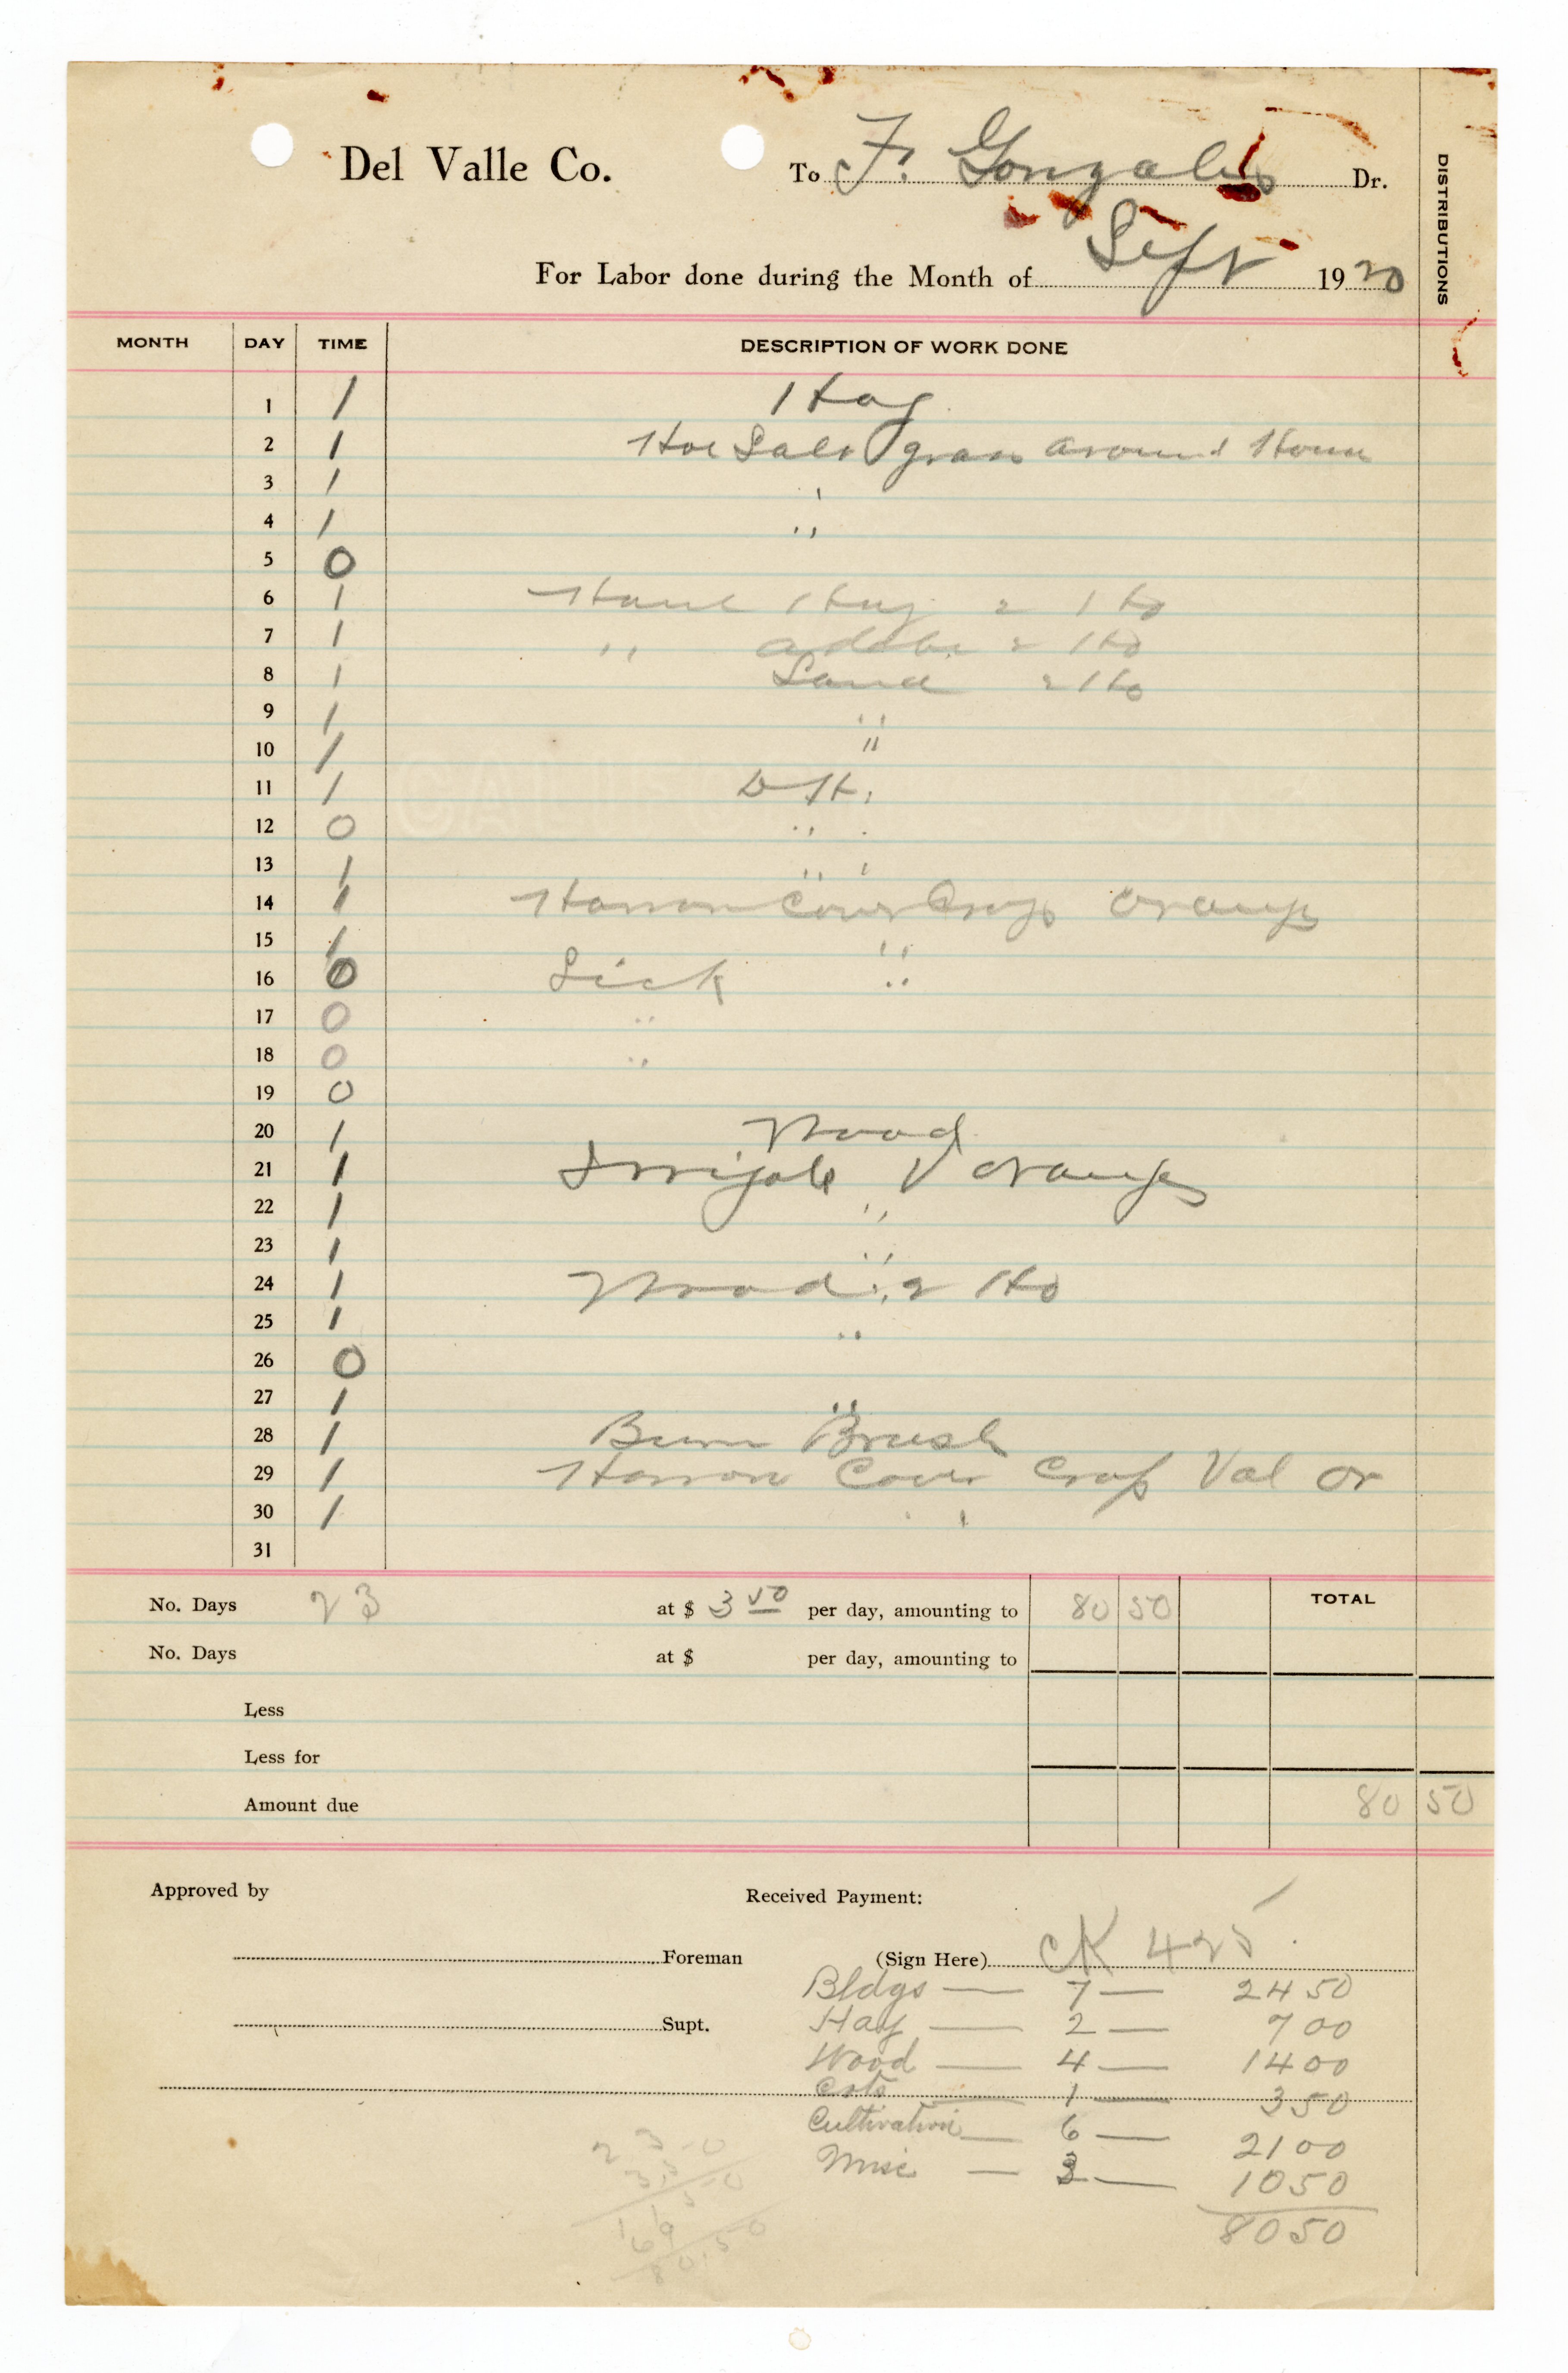 Del Valle Co. To F. Gonzales Dr.
DISTRIBUTIONS
For Labor done during the Month of Sept 1920
MONTH DAY TIME DESCRIPTION OF WORK DONE
1 1 Hay
2 1 Hoe Salt grass around House
3 1 "
4 1 "
5 0
6 1 Haul Hay 2 Ho
7 1 " adobe 2 Ho
8 1 Sand 2 Ho
9 1 "
10 1 "
11 1 D H.
12 0 "
13 1 "
14 1 Harrow Cover Crop Oranges
15 1 "
16 0 Sick "
17 0 "
18 0 "
19 0
20 1 Wood
21 1 Irrigate V oranges
22 1 "
23 1 "
24 1 Wood 2 Ho
25 1 "
26 0
27 1 "
28 1 Burn Brush
29 1 Harrow Cover Crop Val Or
30 1 "
31
No. Days 23 at $ 3 50 per day, amounting to 80 50 TOTAL
No. Days at $ per day, amounting to
Less
Less for
Amount due 80 50
Approved by Received Payment:
Foreman (Sign Here) CK 425
Bldgs — 7 — 24 50
Supt. Hay — 2 — 7 00
Wood — 4 — 14 00
— 1 — 3 50
Cultivation — 6 — 21 00
Misc — 3 — 10 50
80 50
23
3.50
69
80.50